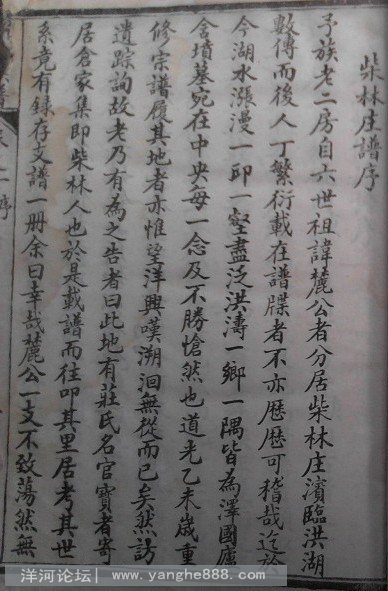 柴林庄譜序
予族老二房自六世祖諱麓公者分居柴林庄濱臨洪湖
數傳而後人丁繁衍載在譜牒者不亦歷歷可稽哉迄於
今湖水漲漫一邱一壑盡泛洪濤一鄉一隅皆為澤國廬
舍墳墓宛在中央每一念及不勝愴然也道光乙未歲重
修宗譜履其地者亦惟望洋興嘆溯洄無從而已矣然訪
遺踪詢故老乃有為之告者曰此地有莊氏名官寶者寄
居倉家集即柴林人也於是載譜而往叩其里居考其世
系竟有錄存支譜一册余曰幸哉麓公一支不致蕩然無
二序
洋河论坛| www.yanghe888.com